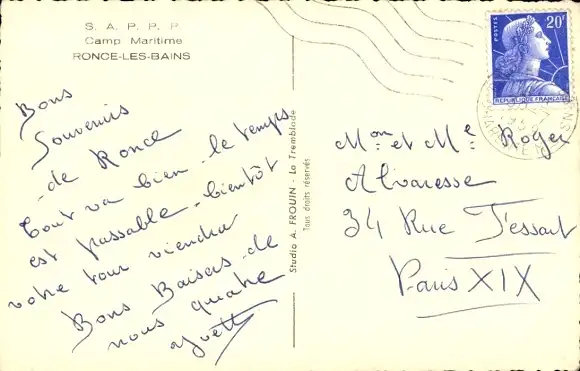 S. A. P. P. P.
Camp Maritime
RONCE-LES-BAINS
Bons
Souvenirs
de Ronce
tout va bien - le temps
est passable - bientôt
votre tour viendra
Bons Baisers de
nous quatre
Yvette
Studio A. FROUIN - La Tremblade
Tous droits réservés
POSTES
20F
REPUBLIQUE FRANÇAISE
Mon et Me Roger
Alvaresse
34 Rue Tessart
Paris XIX